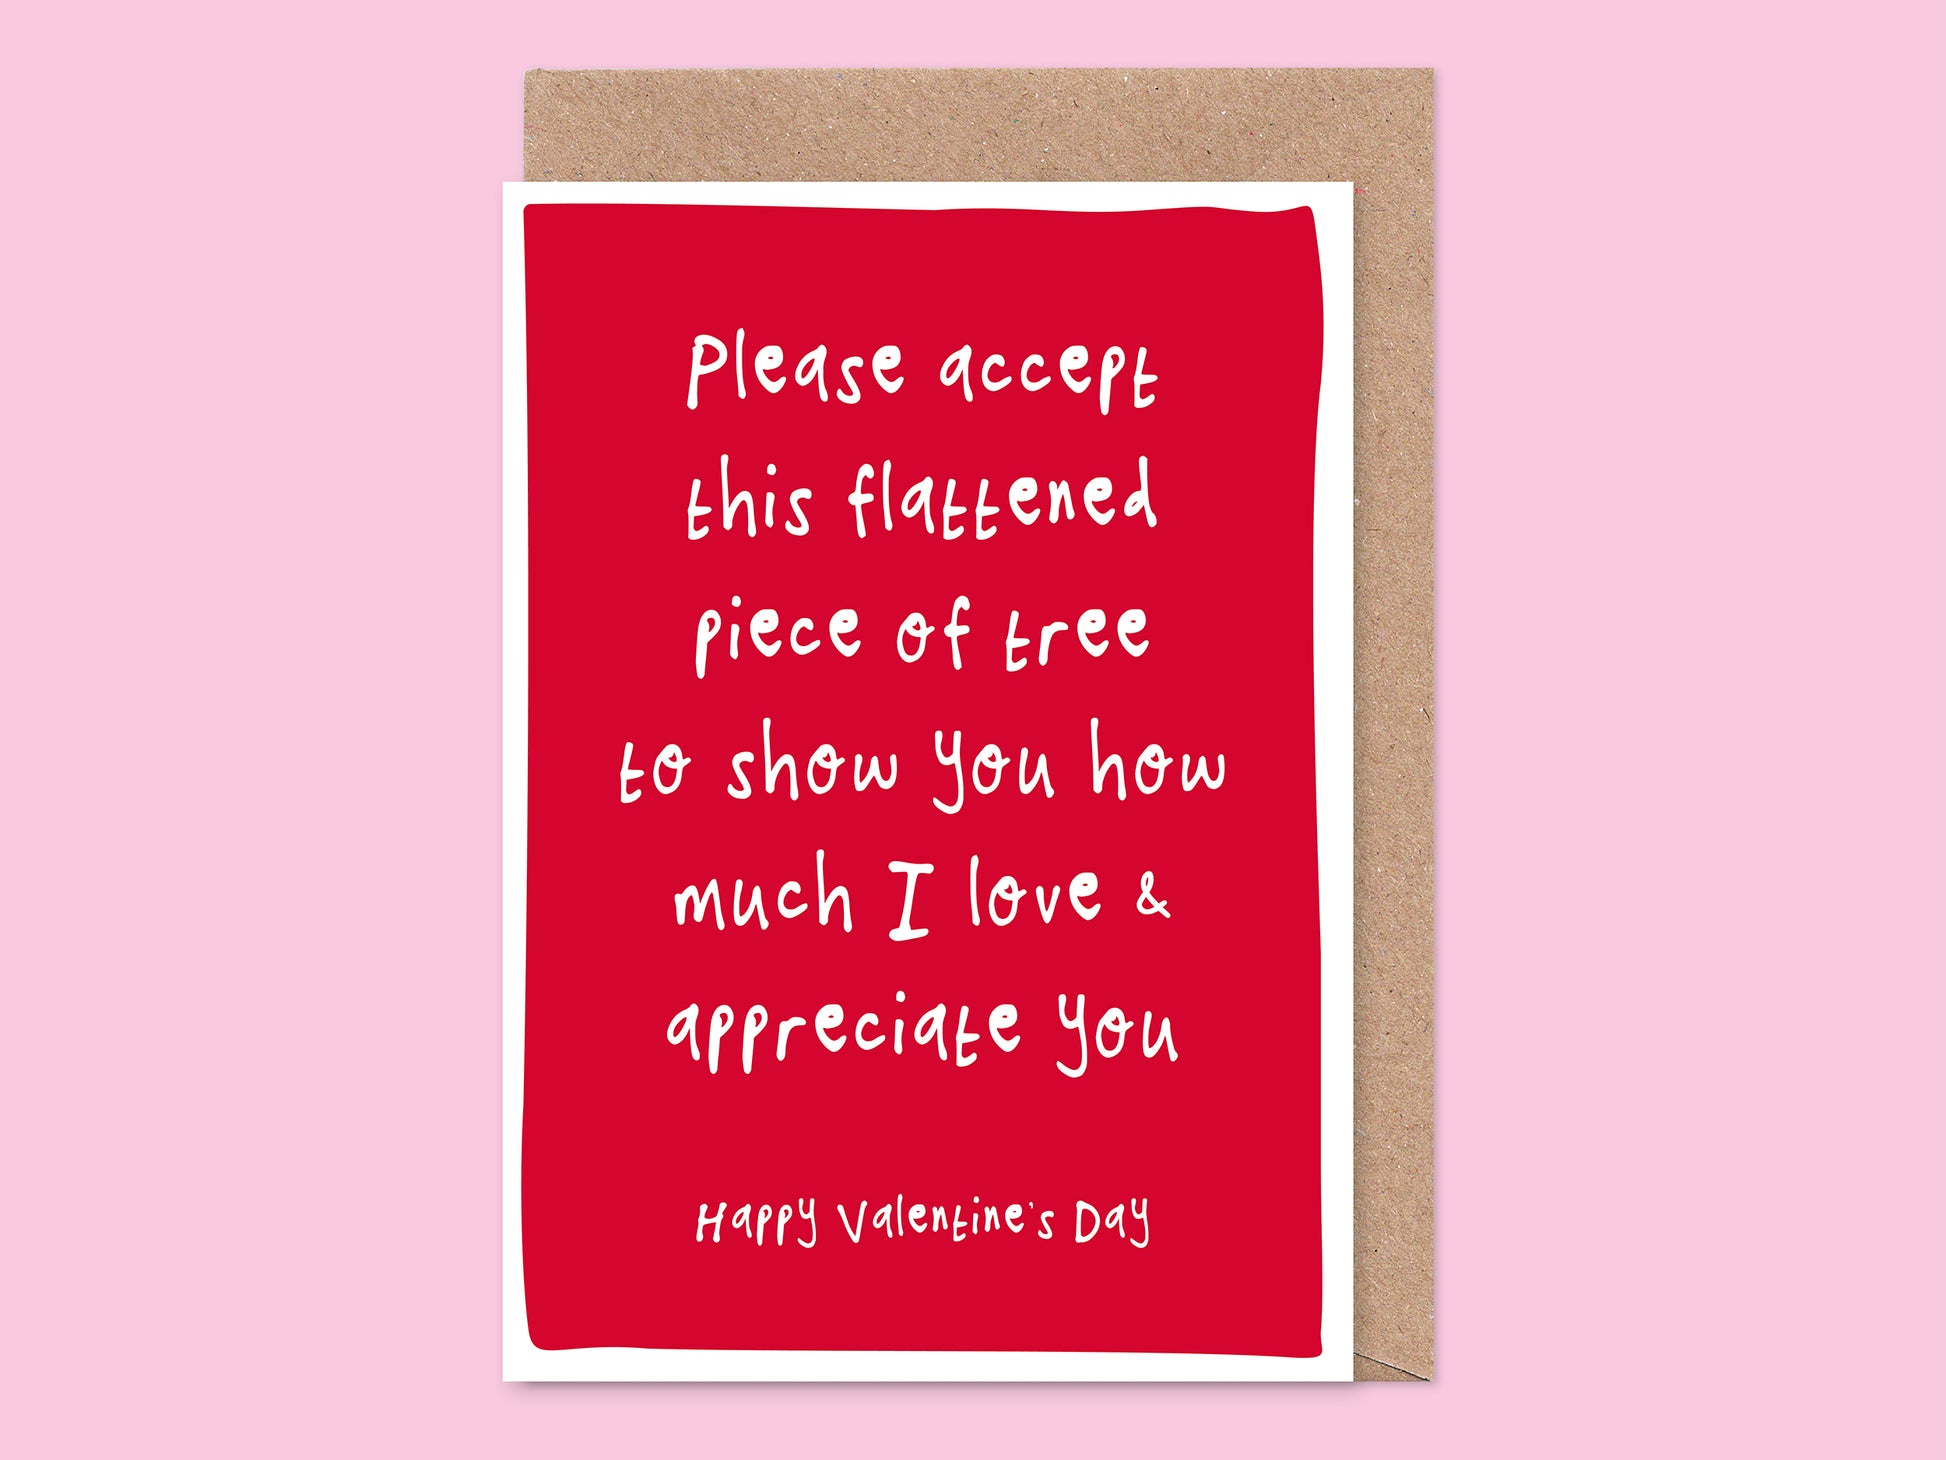 Please accept
this flattened
piece of tree
to show you how
much I love &
appreciate you
Happy Valentine's Day